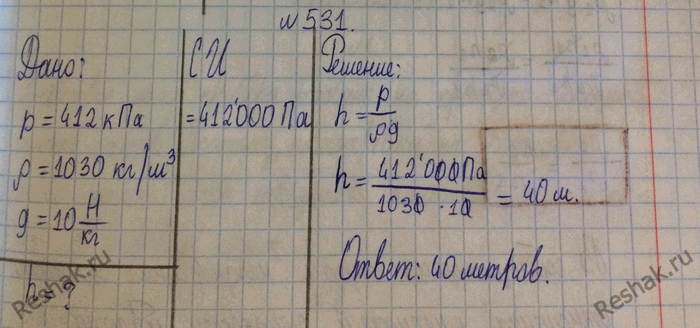 №531.
Дано:
p = 412 кПа
ρ = 1030 кг/м³
g = 10 Н/кг
h = ?
СИ
= 412'000 Па
Решение:
h = p/ρg
h = 412'000Па/1030 · 10 = 40 м.
Ответ: 40 метров.
Reshak.ru
Reshak.ru